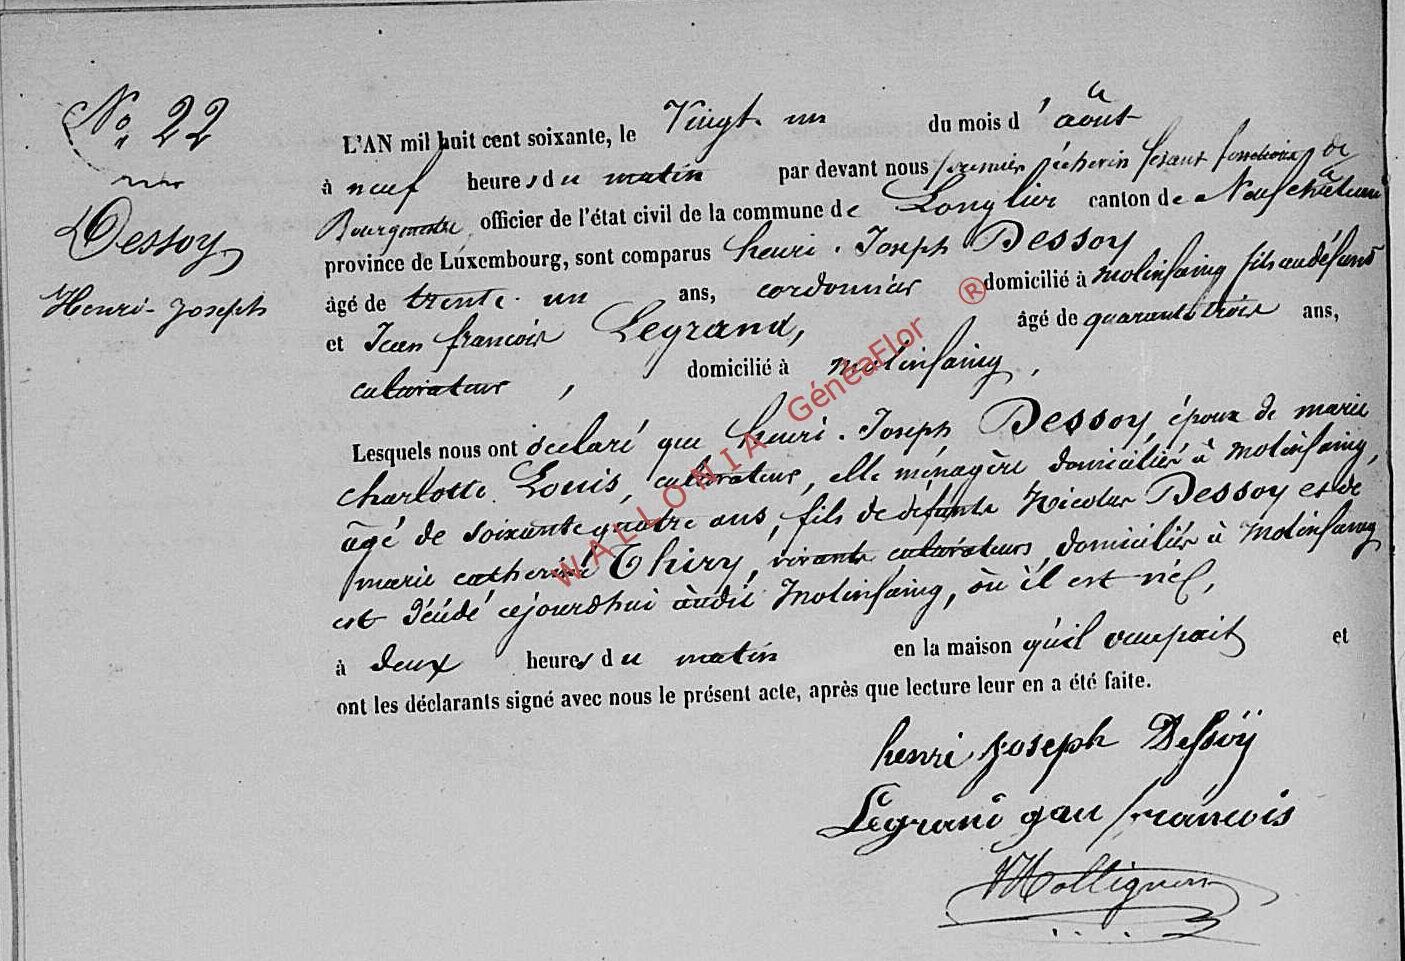 No 22
Dessoy
Henri-Joseph
L'AN mil huit cent soixante, le Vingt-un du mois d'août
à neuf heures du matin par devant nous premier échevin fesant fonctions de
Bourgmestre, officier de l'état civil de la commune de Longlier canton de Neufchâteau
province de Luxembourg, sont comparus henri-Joseph Dessoy
âgé de trente-un ans, cordonnier domicilié à molinfaing fils au défunt
et Jean françois Legrand, âgé de quarante trois ans,
cultivateur, domicilié à molinfaing,
Lesquels nous ont déclaré que henri-Joseph Dessoy, époux de marie
charlotte Louis, cultivateur, elle ménagère domiciliés à molinfaing,
âgé de soixante quatre ans, fils de défunts Nicolas Dessoy et de
marie catherine Thiry, vivants cultivateurs domiciliés à Molinfaing
est décédé cejourdhui audit Molinfaing, où il est né,
à deux heures du matin en la maison qu'il occupait et
ont les déclarants signé avec nous le présent acte, après que lecture leur en a été faite.
henri joseph Dessoÿ
Legrand jean francois
WALLONIA GénéaFlor ®